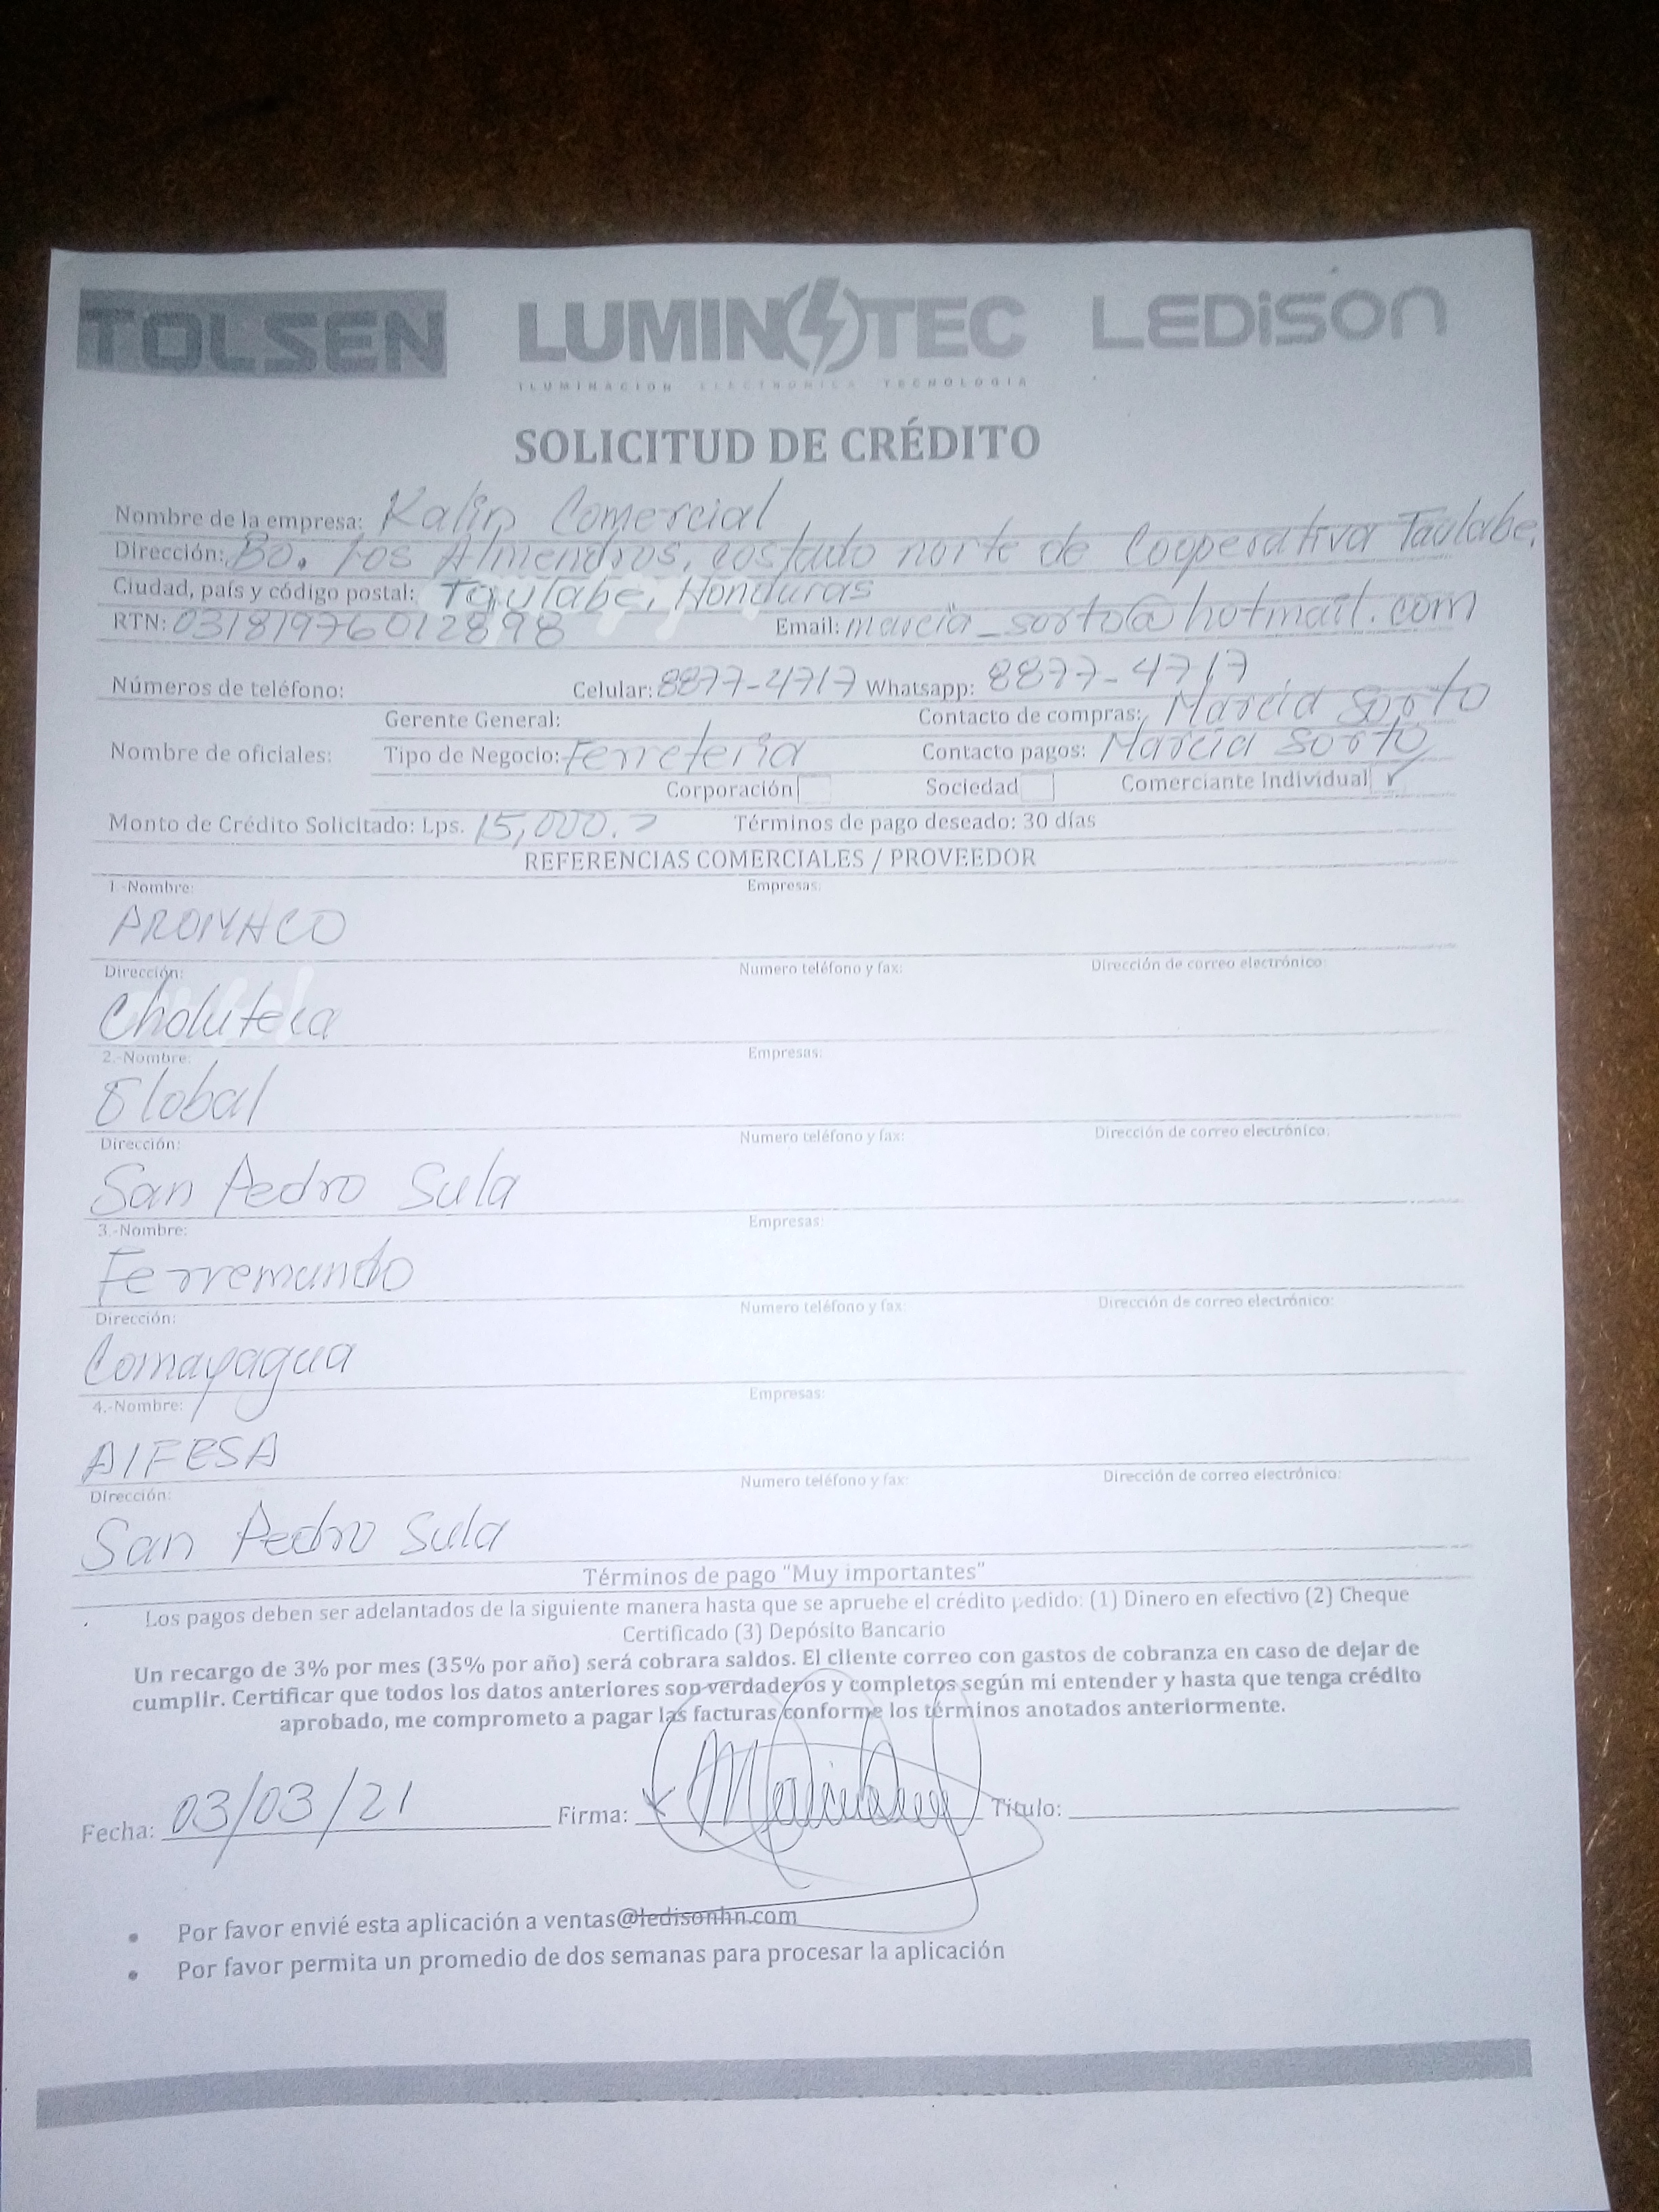 TOLSEN LUMINOTEC LEDiSON
ILUMINACION ELECTRONICA TECNOLOGIA
SOLICITUD DE CRÉDITO
Nombre de la empresa: Kalin Comercial
Dirección: Bo. Los Almendros, costado norte de Cooperativa Taulabe,
Ciudad, país y código postal: Taulabe, Honduras
RTN: 03181976012898 Email: marcia_sorto@hotmail.com
Números de teléfono: Celular: 8877-4717 Whatsapp: 8877-4717
Gerente General: Contacto de compras: Marcia Sorto
Nombre de oficiales: Tipo de Negocio: Ferreteria Contacto pagos: Marcia Sorto
Corporación Sociedad Comerciante Individual ✓
Monto de Crédito Solicitado: Lps. 15,000. Términos de pago deseado: 30 días
REFERENCIAS COMERCIALES / PROVEEDOR
1-Nombre: Empresas:
PROMACO
Dirección: Numero teléfono y fax: Dirección de correo electrónico:
Choluteca
2.-Nombre: Empresas:
Global
Dirección: Numero teléfono y fax: Dirección de correo electrónico:
San Pedro Sula
3.-Nombre: Empresas:
Ferremundo
Dirección: Numero teléfono y fax: Dirección de correo electrónico:
Comayagua
4.-Nombre: Empresas:
AIFESA
Dirección: Numero teléfono y fax: Dirección de correo electrónico:
San Pedro Sula
Términos de pago "Muy importantes"
Los pagos deben ser adelantados de la siguiente manera hasta que se apruebe el crédito pedido: (1) Dinero en efectivo (2) Cheque
Certificado (3) Depósito Bancario
Un recargo de 3% por mes (35% por año) será cobrara saldos. El cliente correo con gastos de cobranza en caso de dejar de
cumplir. Certificar que todos los datos anteriores son verdaderos y completos según mi entender y hasta que tenga crédito
aprobado, me comprometo a pagar las facturas conforme los términos anotados anteriormente.
Fecha: 03/03/21 Firma: Titulo:
• Por favor envié esta aplicación a ventas@ledisonhn.com
• Por favor permita un promedio de dos semanas para procesar la aplicación